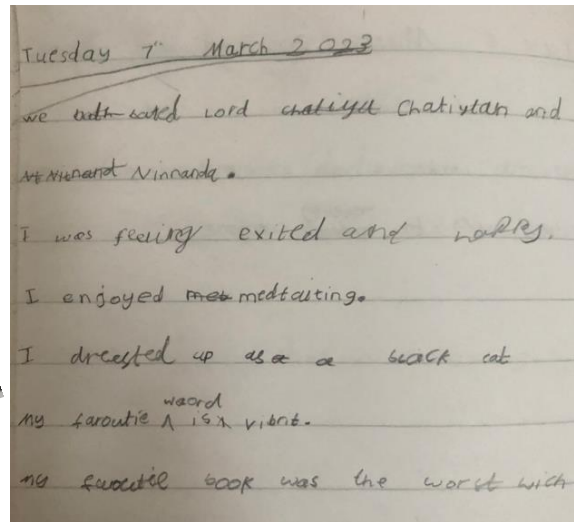 Tuesday 7th March 2023
we bath bated Lord chatiya Chatiytan and
Nt Nithand Ninnanda.
I was feeling exited and happy.
I enjoyed met medtaiting.
I dreested up as a a black cat
my faroutie waord is vibrit.
my favoutie book was the worst wich